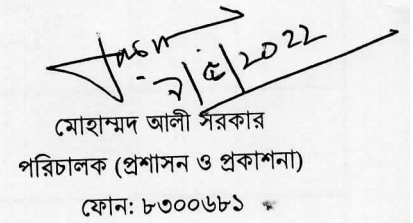 মোহাম্মদ আলী সরকার
পরিচালক (প্রশাসন ও প্রকাশনা)
ফোন: ৮৩০০৬৮১